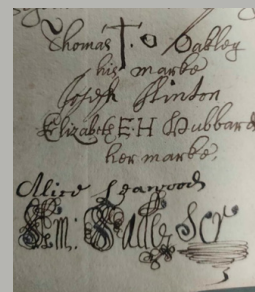 Thomas † o Oakley
his marke
Joseph Hinton
Elizabeth E·H Hubbard
her marke,
Alice
Scr